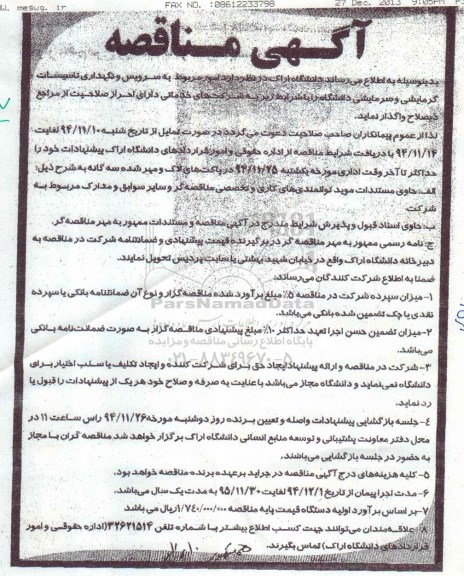 W. meswg. ir FAX NO. :08612233798 27 Dec. 2013 9:05PM P
آگهی مناقصه
بدینوسیله به اطلاع می‌رساند دانشگاه اراک در نظر دارد امور مربوط به سرویس و نگهداری تاسیسات
گرمایشی و سرمایشی دانشگاه را با شرایط زیر به شرکت‌های خدماتی دارای احراز صلاحیت از مراجع
ذیصلاح واگذار نماید.
لذا از عموم پیمانکاران صاحب صلاحیت دعوت می‌گردد در صورت تمایل از تاریخ شنبه ۹۴/۱۱/۱۰ لغایت
۹۴/۱۱/۱۴ با دریافت شرایط مناقصه از اداره حقوقی و امور قراردادهای دانشگاه اراک پیشنهادات خود را
حداکثر تا آخر وقت اداری مورخه یکشنبه ۹۴/۱۱/۲۵ در پاکت‌های لاک و مهر شده سه گانه به شرح ذیل:
الف: حاوی مستندات موید توانمندی‌های کاری و تخصصی مناقصه گر و سایر سوابق و مدارک مربوط به
شرکت
ب: حاوی اسناد قبول و پذیرش شرایط مندرج در آگهی مناقصه و مستندات ممهور به مهر مناقصه گر.
ج: نامه رسمی ممهور به مهر مناقصه گر در برگیرنده قیمت پیشنهادی و ضمانتنامه شرکت در مناقصه به
دبیرخانه دانشگاه اراک واقع در خیابان شهید بهشتی یا سایت پردیس تحویل نمایند.
ضمنا به اطلاع شرکت کنندگان می‌رساند:
۱- میزان سپرده شرکت در مناقصه ۵٪ مبلغ برآورد شده مناقصه گزار و نوع آن ضمانتنامه بانکی یا سپرده
نقدی یا چک تضمین شده بانکی می‌باشد.
ParsNamadData
۲- میزان تضمین حسن اجرا تعهد حداکثر ۱۰٪ مبلغ پیشنهادی مناقصه گزار به صورت ضمانت‌نامه بانکی
می‌باشد.
پایگاه اطلاع رسانی مناقصه و مزایده
۰۲۱-۸۸۳۴۹۶۷۰-۵
۳- شرکت در مناقصه و ارائه پیشنهاد ایجاد حق برای شرکت کننده و ایجاد تکلیف یا سلب اختیار برای
دانشگاه نمی‌نماید و دانشگاه مجاز می‌باشد با عنایت به صرفه و صلاح خود هر یک از پیشنهادات را قبول یا
رد نماید.
۴- جلسه بازگشایی پیشنهادات واصله و تعیین برنده روز دوشنبه مورخه ۹۴/۱۱/۲۶ راس ساعت ۱۱ در
محل دفتر معاونت پشتیبانی و توسعه منابع انسانی دانشگاه اراک برگزار خواهد شد مناقصه گران با مجاز
به حضور در جلسه بازگشایی می‌باشند.
۵- کلیه هزینه‌های درج آگهی مناقصه در جراید بر عهده برنده مناقصه خواهد بود.
۶- مدت اجرا پیمان از تاریخ ۹۴/۱۲/۱ لغایت ۹۵/۱۱/۳۰ به مدت یک سال می‌باشد.
۷- بر اساس برآورد اولیه دستگاه قیمت پایه مناقصه ۱/۷۴۰/۰۰۰/۰۰۰ ریال می باشد
۸- علاقه‌مندان می‌توانند جهت کسب اطلاع بیشتر با شماره تلفن ۳۲۶۲۱۵۱۴ (اداره حقوقی و امور
قراردادهای دانشگاه اراک) تماس بگیرند.